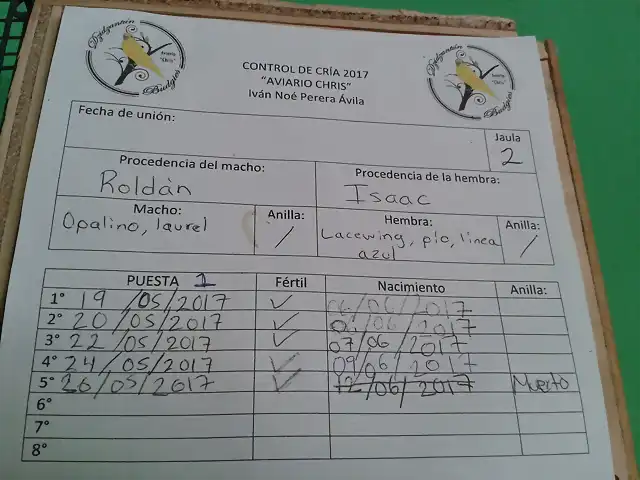 CONTROL DE CRÍA 2017
"AVIARIO CHRIS"
Iván Noé Perera Ávila
Fecha de unión:
Jaula
2
Procedencia del macho:
Roldán
Procedencia de la hembra:
Isaac
Macho:
Opalino, laurel
Anilla:
/
Hembra:
Lacewing, pío, línea
azul
Anilla:
/
PUESTA 1 Fértil Nacimiento Anilla:
1° 19/05/2017 ✓ 06/06/2017
2° 20/05/2017 ✓ /06/2017
3° 22/05/2017 ✓ 07/06/2017
4° 24/05/2017 ✓ 09/06/2017
5° 26/05/2017 ✓ 12/06/2017 Muerto
6°
7°
8°